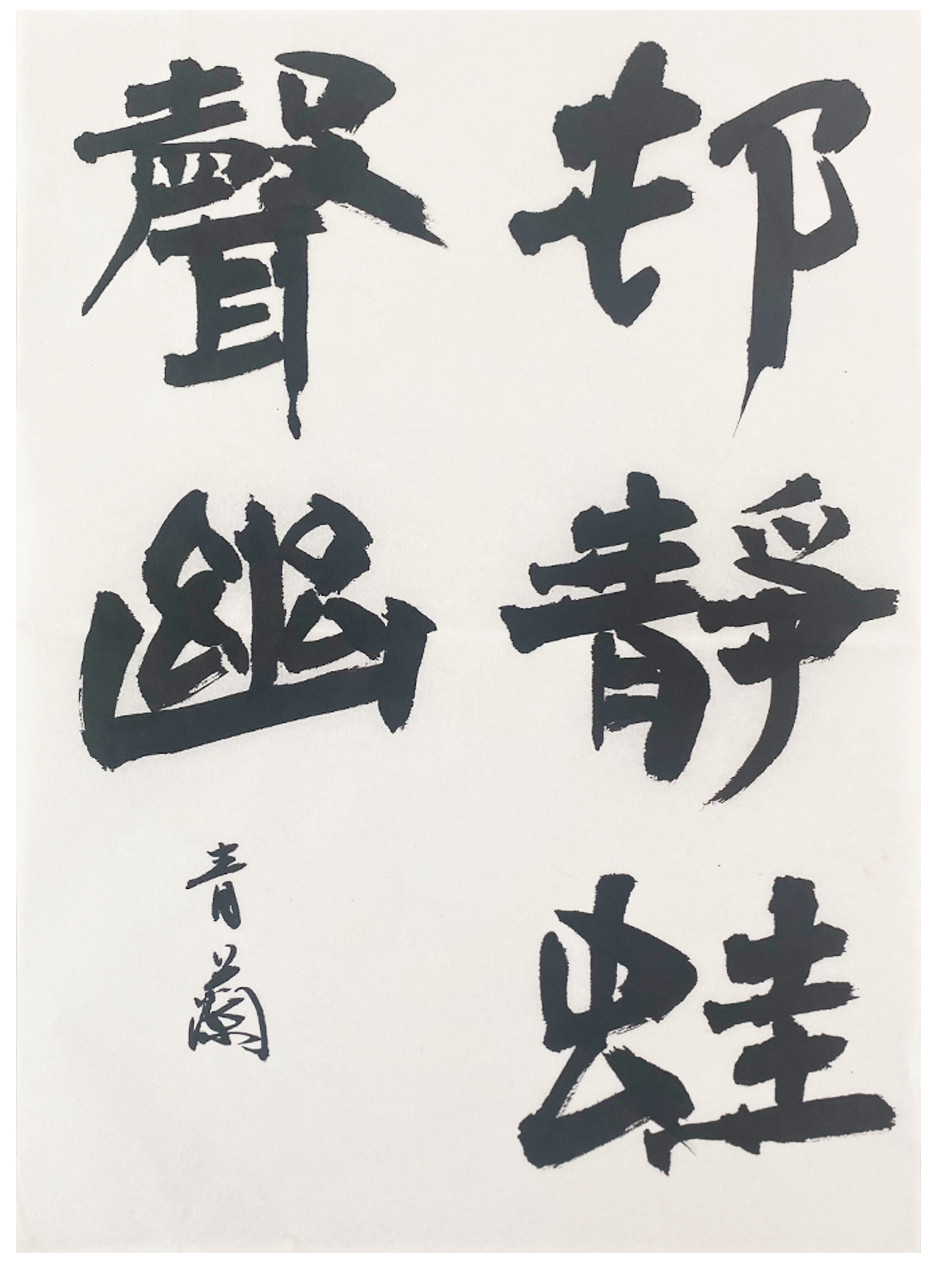 邨靜蛙
聲幽
青蘭